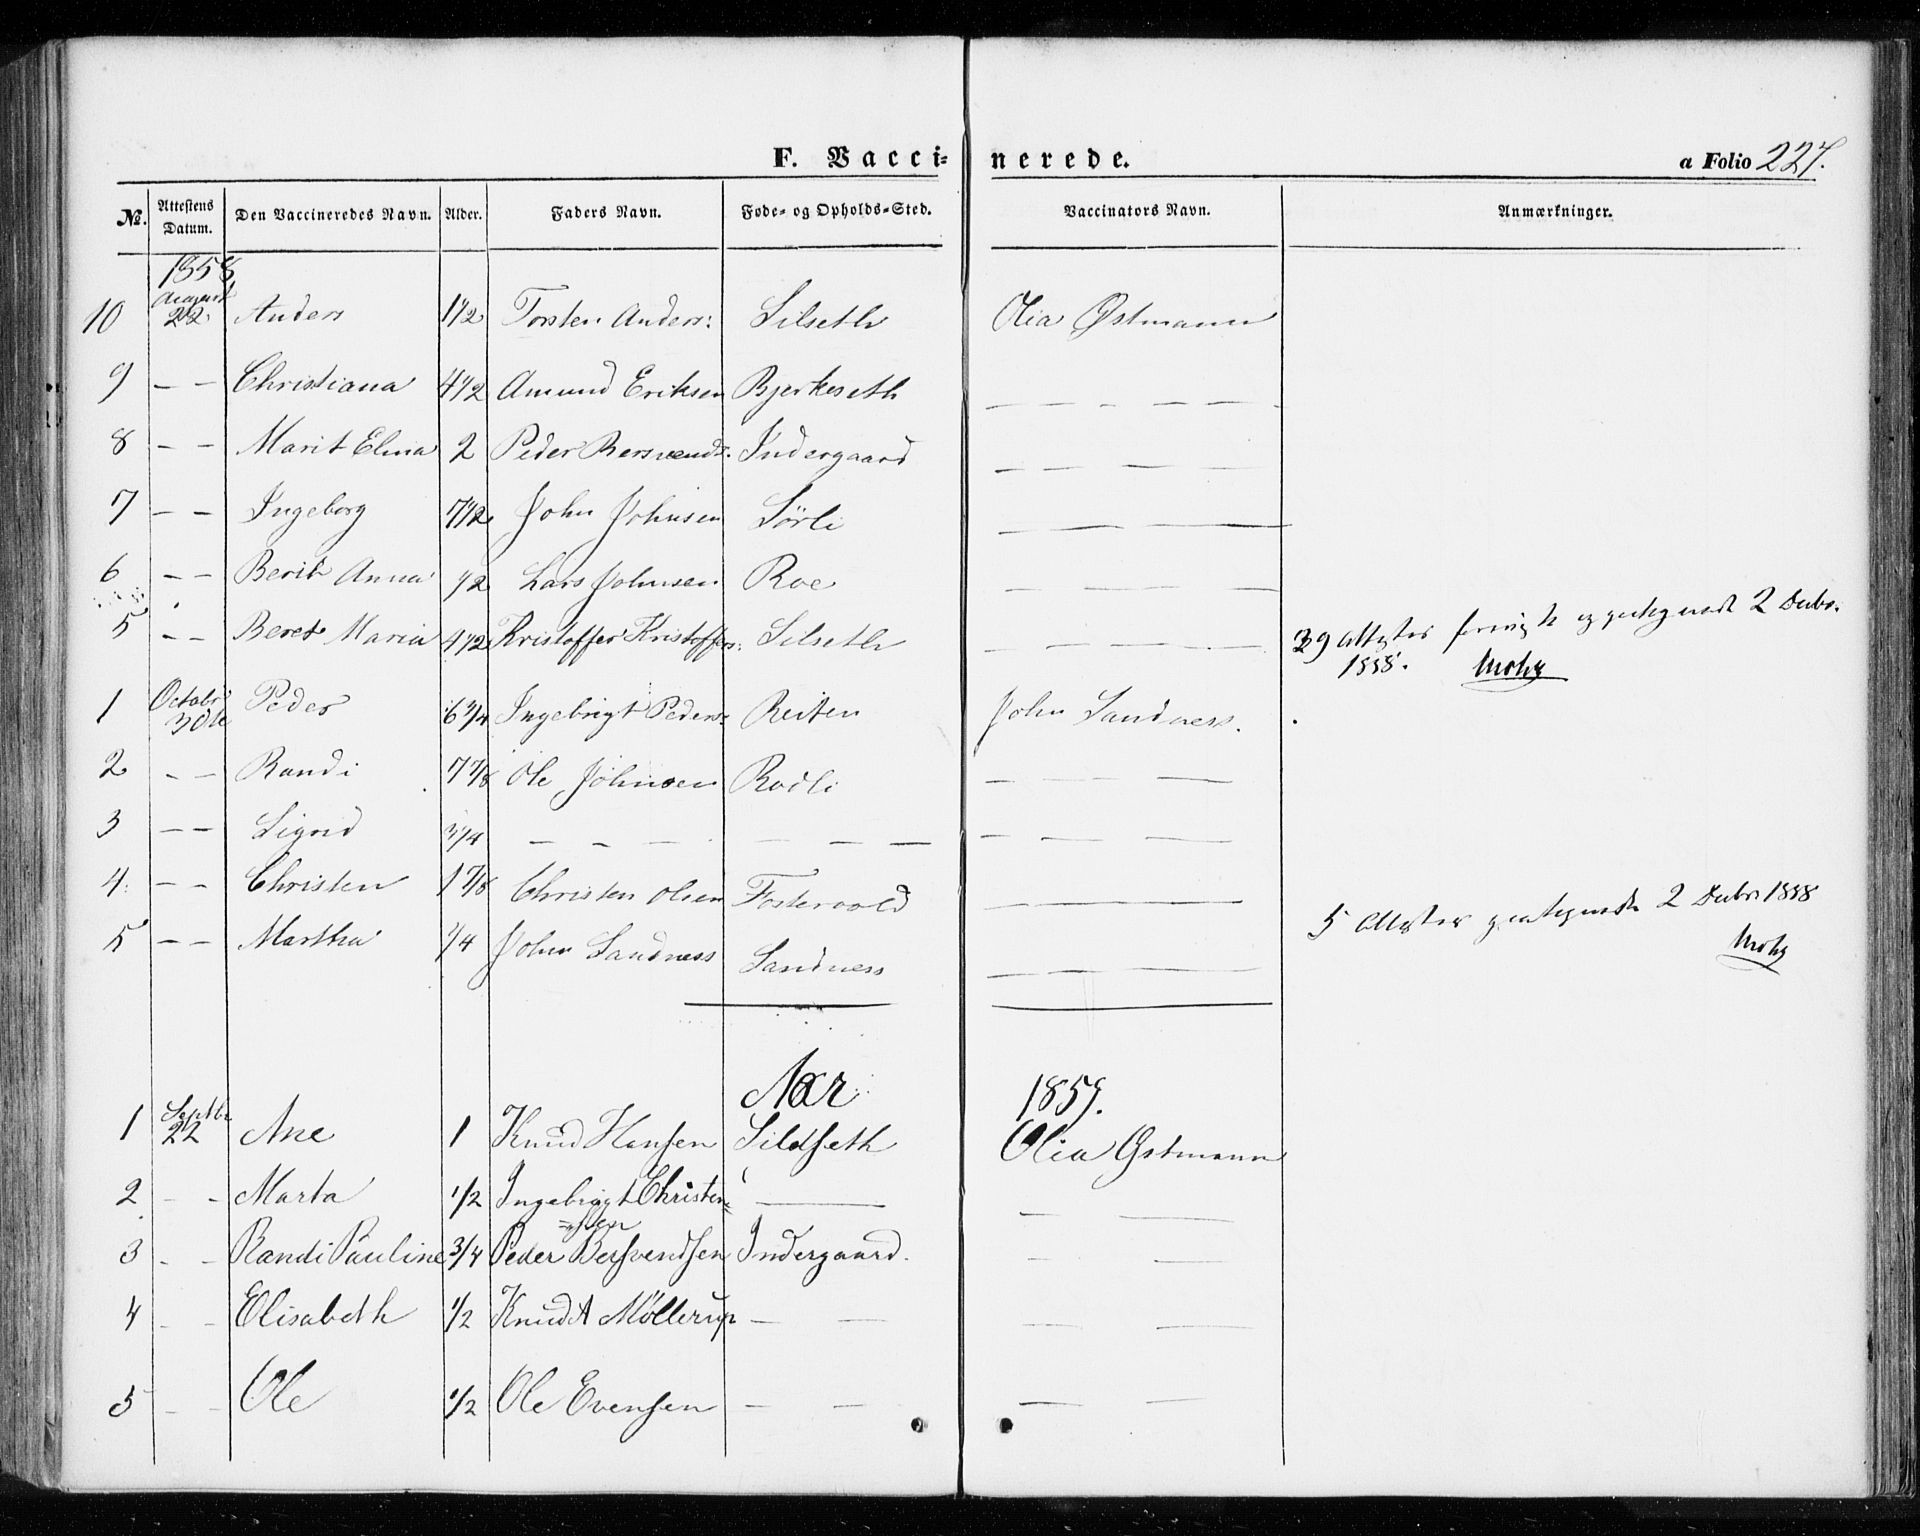 F. Vaccinerede. a Folio 227.
№. Attestens Datum. Den Vaccineredes Navn. Alder. Faders Navn. Føde- og Opholds-Sted. Vaccinators Navn. Anmærkninger.
1858
10 August 22 Anders 1 1/2 Torsten Anders: Silseth Olia Østmann
9 – – Christiana 4 1/2 Amund Eriksen Bjerkeseth – – – – –
8 – – Marit Elina 2 Peder Bersvends. Indergaard – – – –
7 – – Ingeborg 7 1/2 John Johnsen Sörli – – – –
6 – – Berit Anna 1/2 Lars Johnsen Roe – – – –
5 – – Beret Maria 4 1/2 Kristoffer Kristoffers: Silseth – – – – 29 Attester 2 Decbr. 1858.
1 Octobr 30te Peder 6 3/4 Ingebrigt Peders: Reiten John Sandness.
2 – – Randi 7 7/8 Ole Johnsen Rødli – – –
3 – – Sigrid 3/4 – – – – – – – – – –
4. – – Christen 1 7/8 Christen Olsen Fostervold – – – –
5 – – Martha 1/4 John Sandness Sandness – – – – 5 Attester 2 Decbr 1858
Aar 1859.
1 Septbr 22 Ane 1 Knud Hansen Sildseth Olia Østmann
2 – – Marta 1/2 Ingebrigt Christen=
=sen — – —
3 – – Randi Pauline 3/4 Peder Bersvendsen Indergaard. – –
4 – – Elisabeth 1/2 Knud A Möllerup – – – –
5 – – Ole 1/2 Ole Evensen – – – –